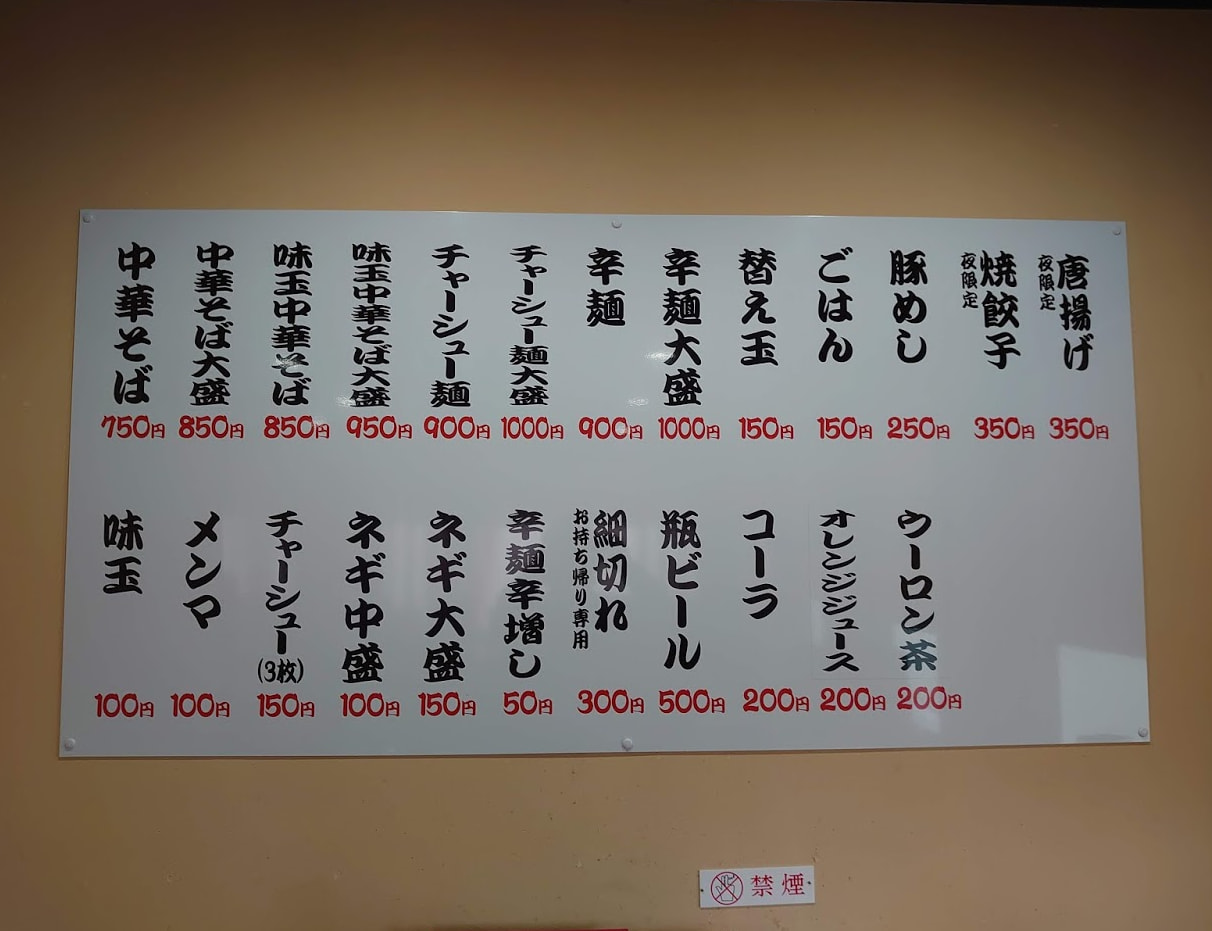 中華そば
750円
中華そば大盛
850円
味玉中華そば
850円
味玉中華そば大盛
950円
チャーシュー麺
900円
チャーシュー麺大盛
1000円
辛麺
900円
辛麺大盛
1000円
替え玉
150円
ごはん
150円
豚めし
250円
焼餃子
夜限定
350円
唐揚げ
夜限定
350円
味玉
100円
メンマ
100円
チャーシュー(3枚)
150円
ネギ中盛
100円
ネギ大盛
150円
辛麺辛増し
50円
細切れ
お持ち帰り専用
300円
瓶ビール
500円
コーラ
200円
オレンジジュース
200円
ウーロン茶
200円
禁煙